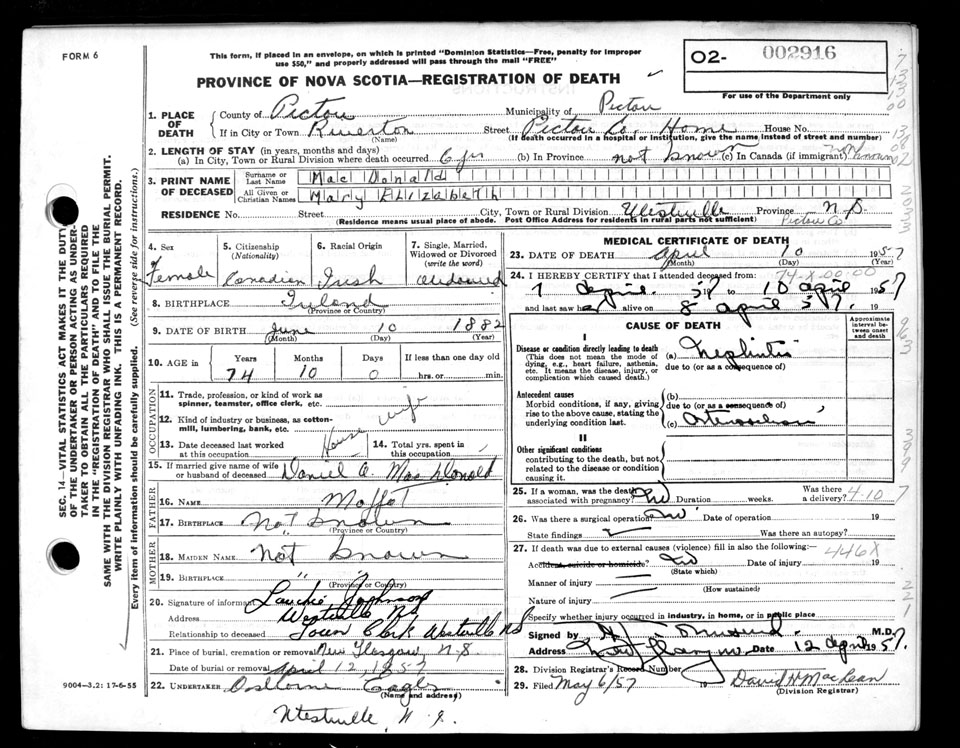 FORM 6
This form, if placed in an envelope, on which is printed "Dominion Statistics—Free, penalty for improper
use $50," and properly addressed will pass through the mail "FREE"
PROVINCE OF NOVA SCOTIA—REGISTRATION OF DEATH
02- 002916
For use of the Department only
1. PLACE OF DEATH
County of Pictou Municipality of Pictou
If in City or Town Riverton Street Pictou Co. Home House No.
(Name) (If death occurred in a hospital or institution, give the name instead of street and number)
2. LENGTH OF STAY (in years, months and days)
(a) In City, Town or Rural Division where death occurred 6 yrs (b) In Province not known (c) In Canada (if immigrant) not known
3. PRINT NAME OF DECEASED
Surname or Last Name MacDonald
All Given or Christian Names Mary Elizabeth
RESIDENCE No. Street City, Town or Rural Division Westville Province N.S.
(Residence means usual place of abode. Post Office Address for residents in rural parts not sufficient) Pictou Co
4. Sex Female
5. Citizenship (Nationality) Canadian
6. Racial Origin Irish
7. Single, Married, Widowed or Divorced (write the word) Widowed
8. BIRTHPLACE Ireland
(Province or Country)
9. DATE OF BIRTH June 10 1882
(Month) (Day) (Year)
10. AGE in Years Months Days If less than one day old
74 10 0 hrs. or min.
OCCUPATION
11. Trade, profession, or kind of work as spinner, teamster, office clerk, etc.
12. Kind of industry or business, as cotton-mill, lumbering, bank, etc.
House wife
13. Date deceased last worked at this occupation
14. Total yrs. spent in this occupation
15. If married give name of wife or husband of deceased Daniel A. MacDonald
FATHER
16. Name Moffat
17. Birthplace Not known
(Province or Country)
MOTHER
18. Maiden Name Not known
19. Birthplace " "
(Province or Country)
20. Signature of informant Lauchie Johnson
Address Westville NS
Relationship to deceased Town Clerk Westville NS
21. Place of burial, cremation or removal New Glasgow N-S
Date of burial or removal April 12, 1957
22. UNDERTAKER Eagles
(Name and address)
Westville N.S.
9004—3.2: 17-6-55
MEDICAL CERTIFICATE OF DEATH
23. DATE OF DEATH April 10 1957
(Month) (Day) (Year)
74-X-00-00
24. I HEREBY CERTIFY that I attended deceased from:
7 April 57 to 10 April 1957
and last saw her alive on 8 April 57.
CAUSE OF DEATH
Approximate interval between onset and death
I
Disease or condition directly leading to death
(This does not mean the mode of dying, e.g., heart failure, asthenia, etc. It means the disease, injury, or complication which caused death.)
(a) Nephritis
due to (or as a consequence of)
Antecedent causes
Morbid conditions, if any, giving rise to the above cause, stating the underlying condition last.
(b)
due to (or as a consequence of)
(c)
II
Other significant conditions
contributing to the death, but not related to the disease or condition causing it.
25. If a woman, was the death associated with pregnancy? No Duration weeks. Was there a delivery?
4-10
26. Was there a surgical operation? No Date of operation 19
State findings Was there an autopsy?
27. If death was due to external causes (violence) fill in also the following:-
446X
Accident, suicide or homicide? No Date of injury 19
(State which)
Manner of injury
(How sustained)
Nature of injury
Specify whether injury occurred in industry, in home, or in public place
Signed by M.D.
Address New Glasgow Date 12 April 1957.
28. Division Registrar's Record Number
29. Filed May 6/57 19 David H MacLean
(Division Registrar)
SEC. 14—VITAL STATISTICS ACT MAKES IT THE DUTY
OF THE UNDERTAKER OR PERSON ACTING AS UNDER-
TAKER TO OBTAIN ALL THE PARTICULARS REQUIRED
IN THE "REGISTRATION OF DEATH" AND TO FILE THE
SAME WITH THE DIVISION REGISTRAR WHO SHALL ISSUE THE BURIAL PERMIT.
WRITE PLAINLY WITH UNFADING INK. THIS IS A PERMANENT RECORD.
Every item of information should be carefully supplied. (See reverse side for instructions.)